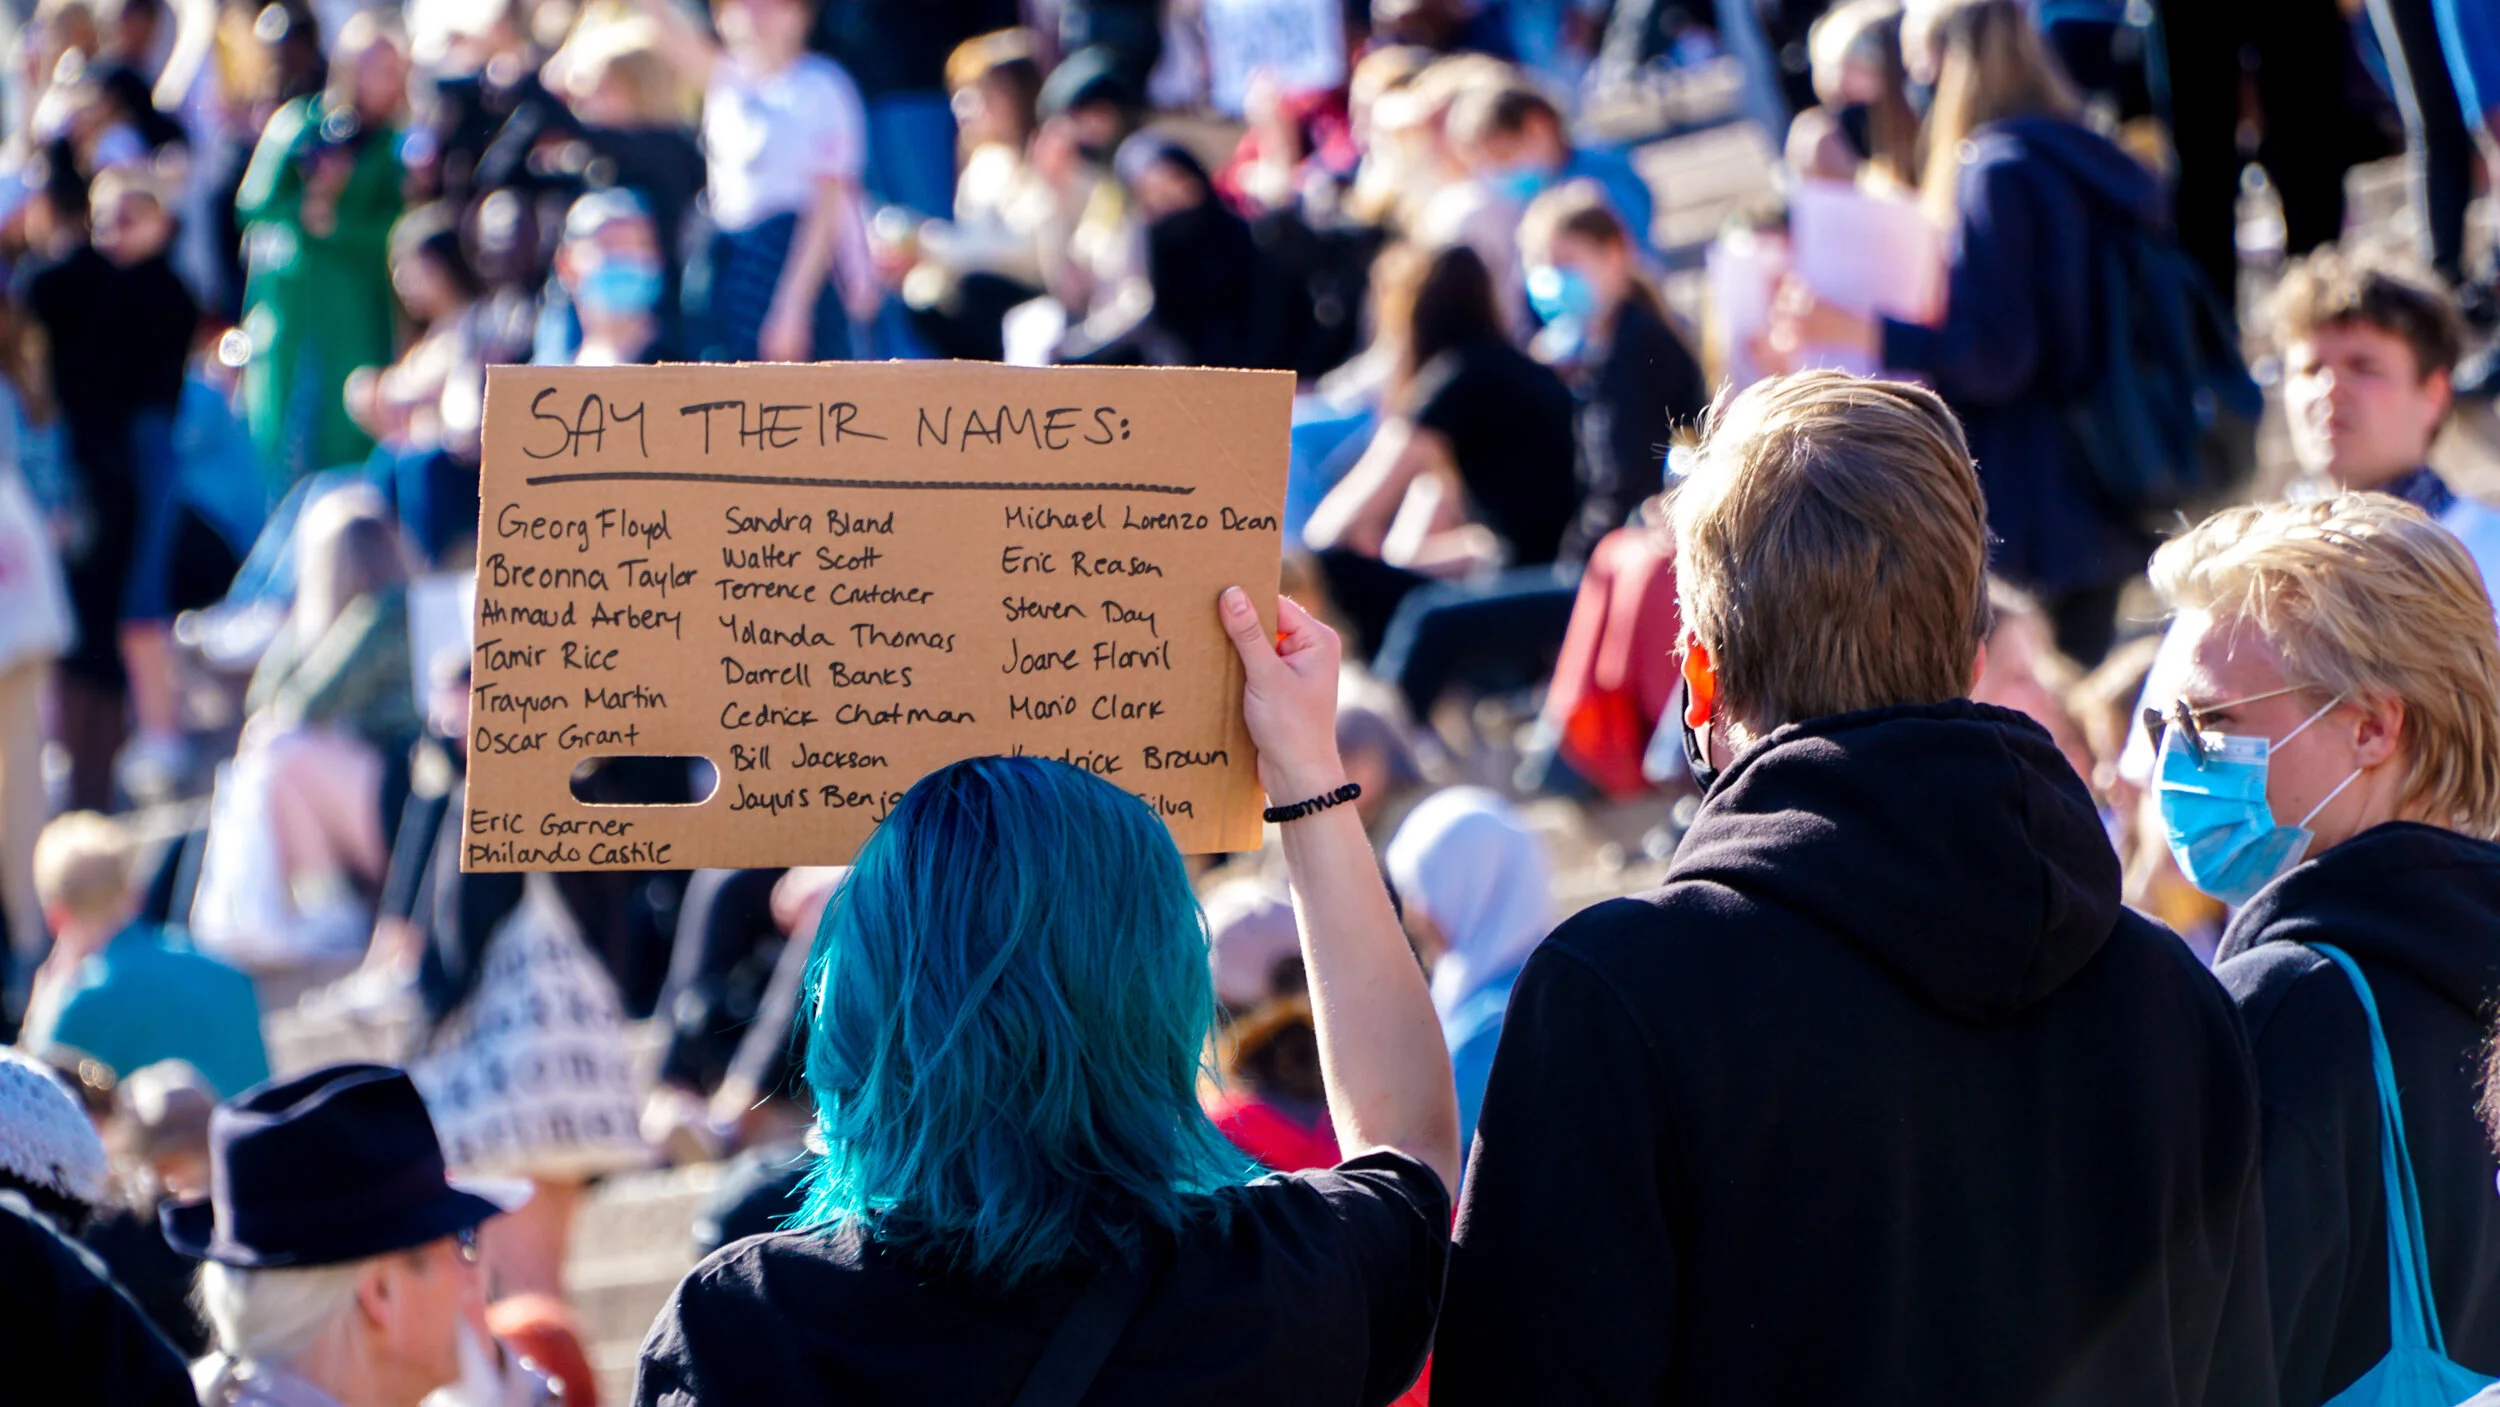 SAY THEIR NAMES:
Georg Floyd
Breonna Taylor
Ahmaud Arbery
Tamir Rice
Trayvon Martin
Oscar Grant
Eric Garner
Philando Castile
Sandra Bland
Walter Scott
Terrence Crutcher
Yolanda Thomas
Darrell Banks
Cedrick Chatman
Bill Jackson
Jayvis Benj
Michael Lorenzo Dean
Eric Reason
Steven Day
Joane Florvil
Mario Clark
Kendrick Brown
Silva